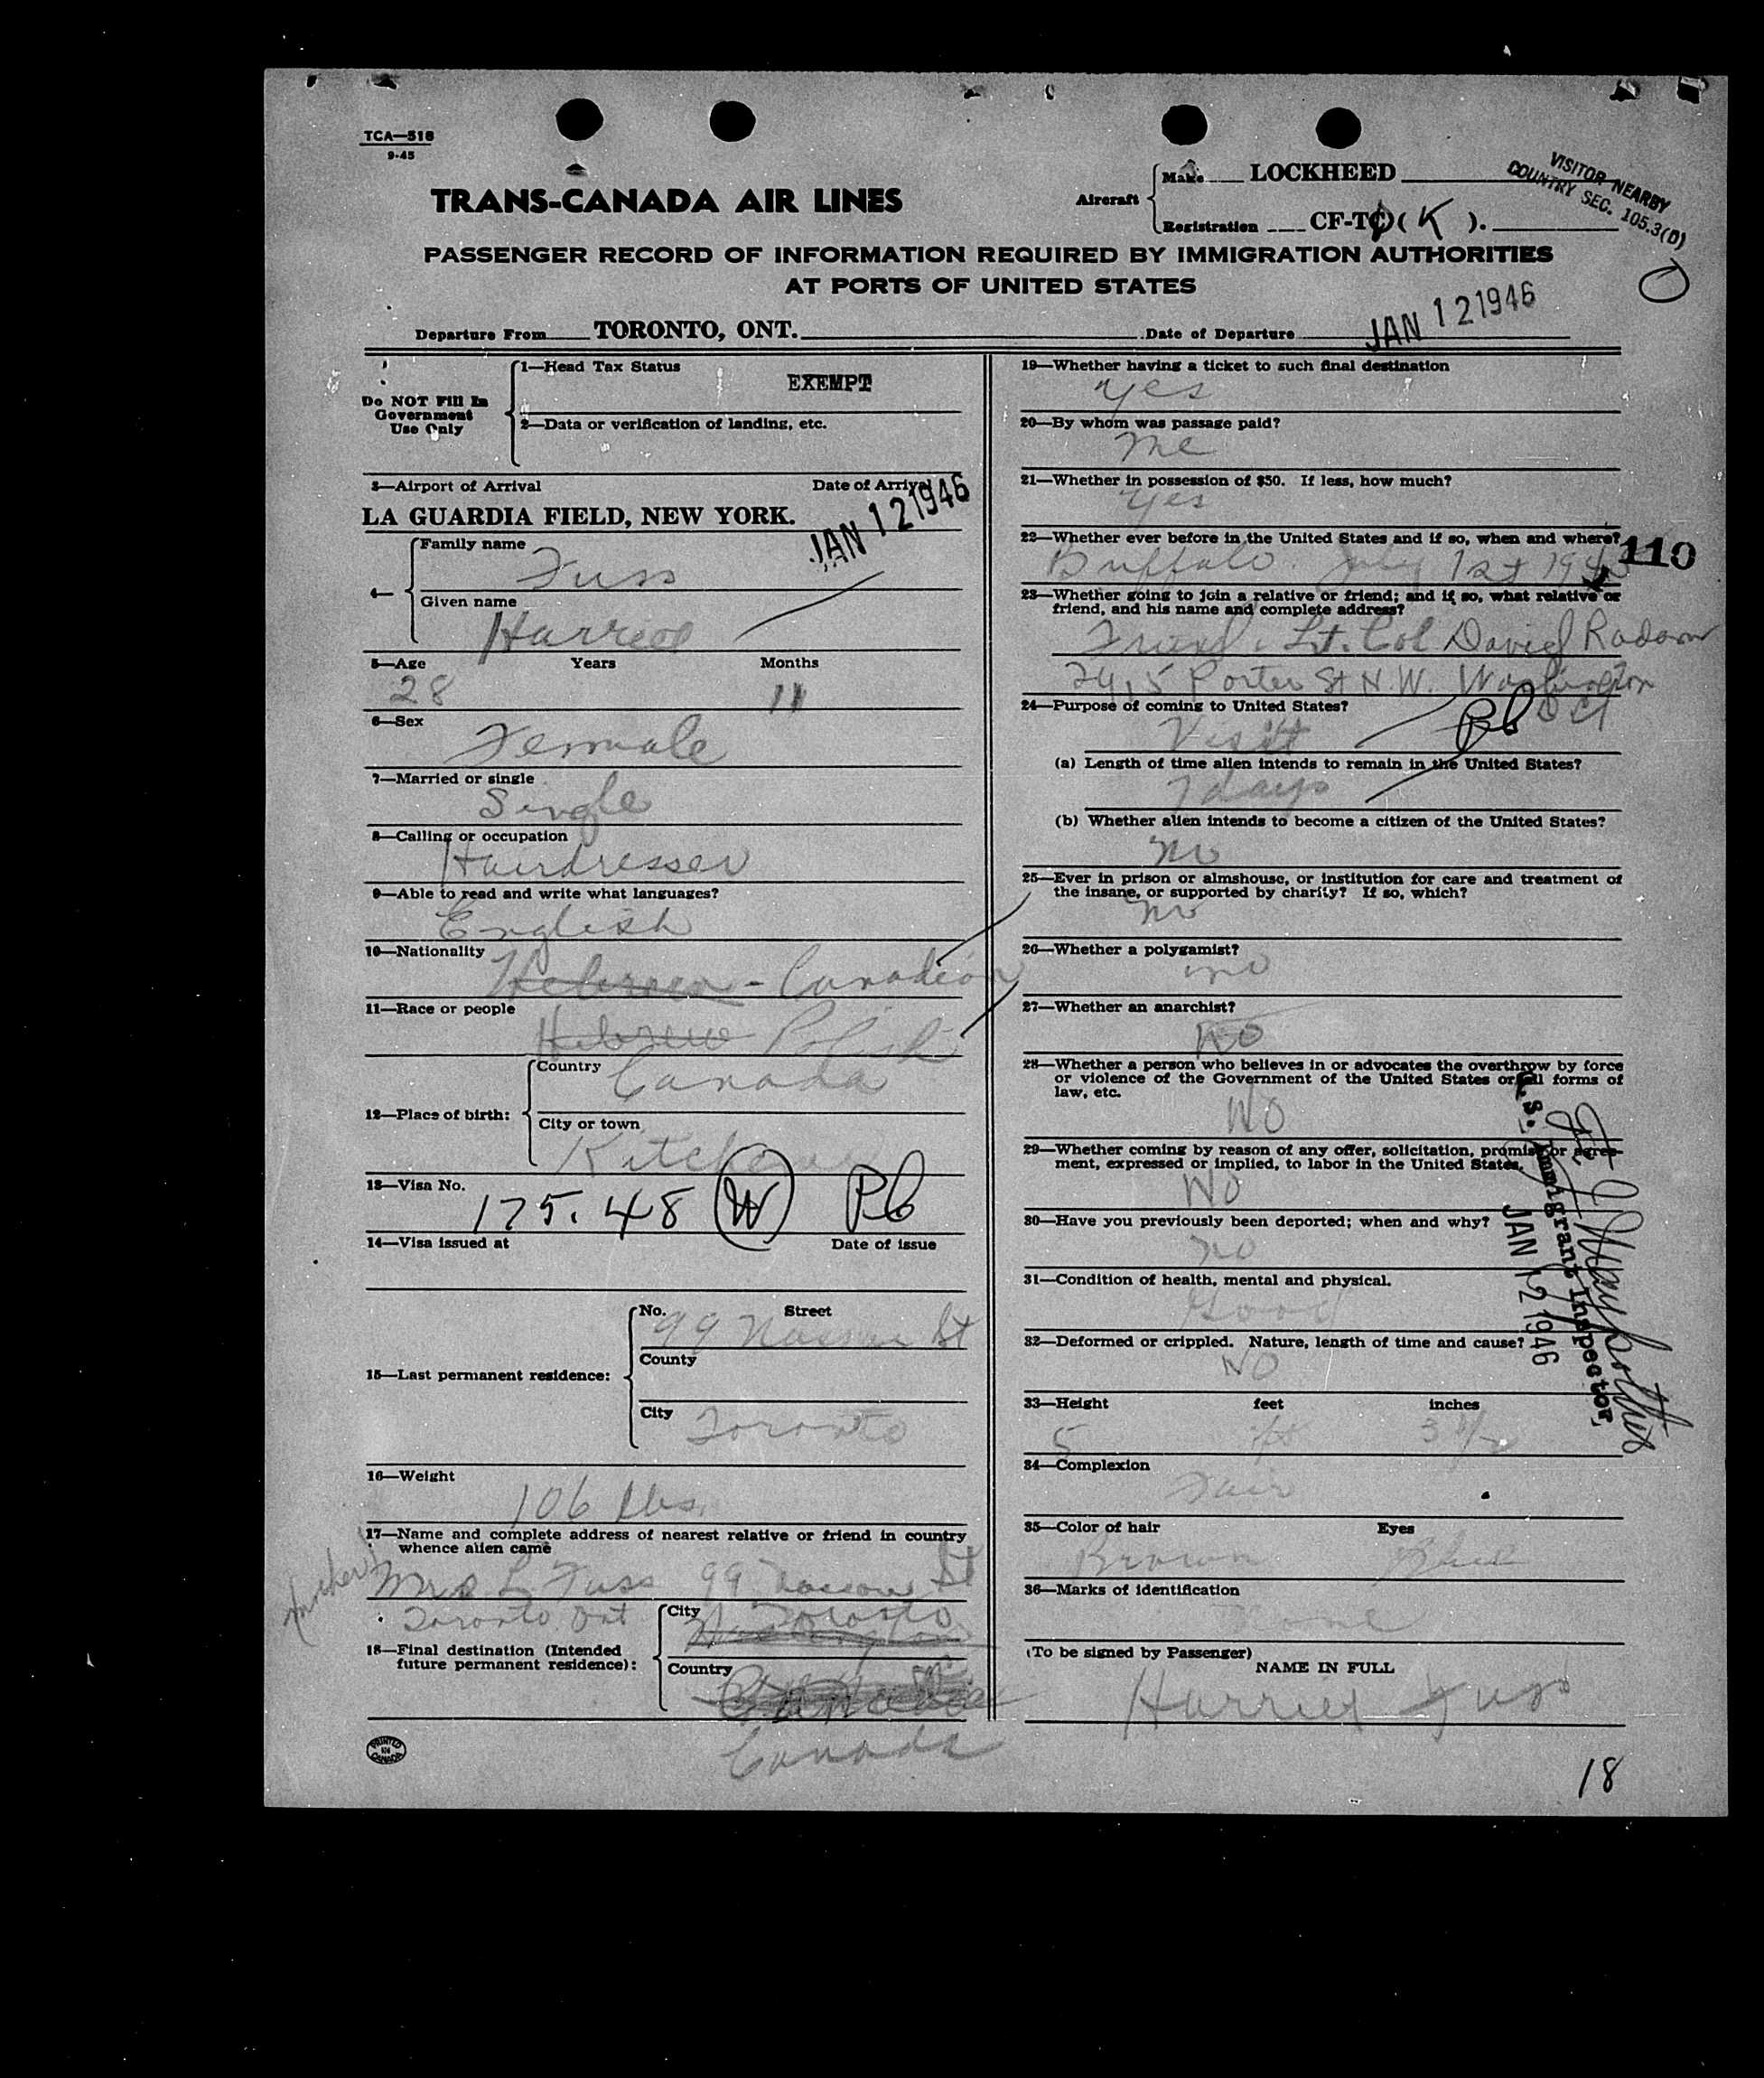 TCA—518
9-45
TRANS-CANADA AIR LINES
Aircraft
Make LOCKHEED
Registration CF-TC ( K ).
VISITOR NEARBY
COUNTRY SEC. 105.3(D)
PASSENGER RECORD OF INFORMATION REQUIRED BY IMMIGRATION AUTHORITIES
AT PORTS OF UNITED STATES
Departure From TORONTO, ONT. Date of Departure JAN 12 1946
Do NOT Fill In
Government
Use Only
1—Head Tax Status
EXEMPT
2—Data or verification of landing, etc.
3—Airport of Arrival Date of Arrival
LA GUARDIA FIELD, NEW YORK. JAN 12 1946
4—
Family name
Fuss
Given name
Harriet
5—Age Years Months
28 11
6—Sex
Female
7—Married or single
Single
8—Calling or occupation
Hairdresser
9—Able to read and write what languages?
English
10—Nationality
Hebrew - Canadian
11—Race or people
Hebrew Polish
12—Place of birth:
Country
Canada
City or town
Kitchener
13—Visa No.
175.48 (W) Pb
14—Visa issued at Date of issue
15—Last permanent residence:
No. Street
99 Nassau St
County
City
Toronto
16—Weight
106 lbs.
17—Name and complete address of nearest relative or friend in country
whence alien came
Mrs L Fuss 99 Nassau St
Toronto Ont
18—Final destination (Intended
future permanent residence):
City
Toronto
Washington
Country
Canada
PRINTED
IN
CANADA
19—Whether having a ticket to such final destination
yes
20—By whom was passage paid?
Me
21—Whether in possession of $50. If less, how much?
yes
22—Whether ever before in the United States and if so, when and where?
110
Buffalo. July 1st
23—Whether going to join a relative or friend; and if so, what relative or
friend, and his name and complete address?
Friend. Lt. Col David
2415 Porter St N.W. Washington
DC
24—Purpose of coming to United States?
Pb
Visit
(a) Length of time alien intends to remain in the United States?
7 days
(b) Whether alien intends to become a citizen of the United States?
no
25—Ever in prison or almshouse, or institution for care and treatment of
the insane, or supported by charity? If so, which?
no
26—Whether a polygamist?
no
27—Whether an anarchist?
No
28—Whether a person who believes in or advocates the overthrow by force
or violence of the Government of the United States or all forms of
law, etc.
NO
29—Whether coming by reason of any offer, solicitation, promise or agree-
ment, expressed or implied, to labor in the United States.
NO
30—Have you previously been deported; when and why?
no
31—Condition of health, mental and physical.
Good
32—Deformed or crippled. Nature, length of time and cause?
NO
U.S. Immigrant Inspector,
JAN 12 1946
33—Height feet inches
5 ft 3 1/2
34—Complexion
Fair
35—Color of hair Eyes
Brown Blue
36—Marks of identification
None
(To be signed by Passenger)
NAME IN FULL
Harriet Fuss
18